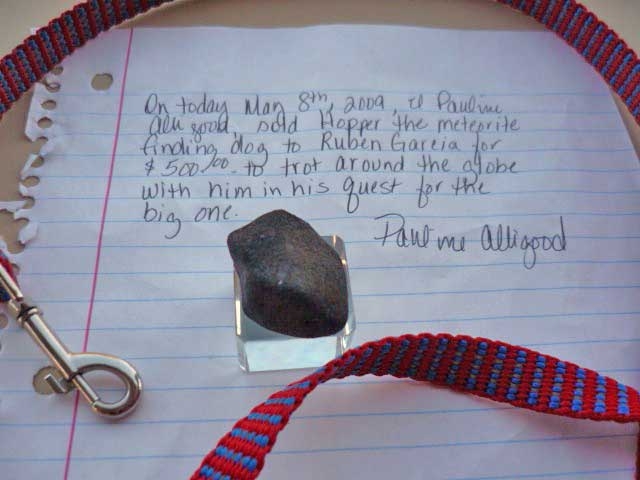 On today May 8th, 2009, I Pauline
Alligood, sold Hopper the meteorite
finding dog to Ruben Garcia for
$500.00 to trot around the globe
with him in his quest for the
big one.
Pauline Alligood